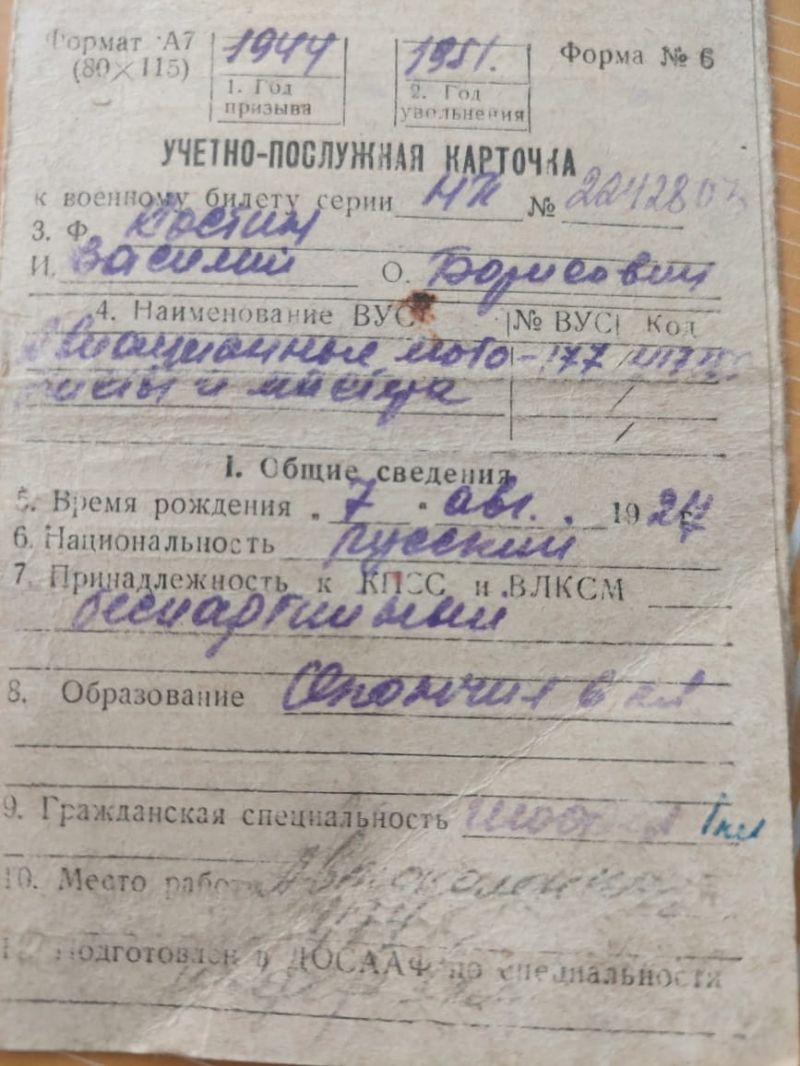 Формат А7 1944 1951. Форма № 6
(80×115) 1. Год призыва 2. Год увольнения
УЧЕТНО-ПОСЛУЖНАЯ КАРТОЧКА
к военному билету серии НП №
3. Ф. Костин
И. Василий О. Борисович
4. Наименование ВУС № ВУС Код
Авиационные мото- 177
ристы и мастера
I. Общие сведения
5. Время рождения „ 7 " авг. 1927 г.
6. Национальность русский
7. Принадлежность к КПСС и ВЛКСМ
беспартийный
8. Образование Окончил 6 кл
9. Гражданская специальность 1 кл
10. Место работы Автоколонна
Подготовлен в ДОСААФ по специальности